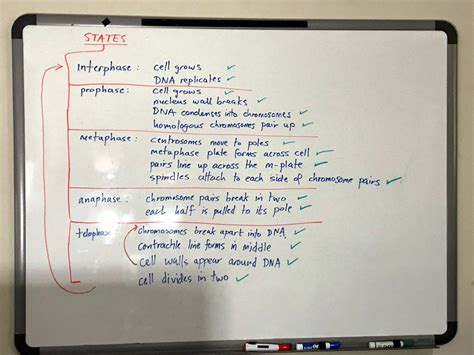 STATES
interphase : cell grows ✓
DNA replicates ✓
prophase : cell grows ✓
nucleus wall breaks ✓
DNA condenses into chromosomes ✓
homologous chromosomes pair up ✓
metaphase : centrosomes move to poles ✓
metaphase plate forms across cell ✓
pairs line up across the m-plate ✓
spindles attach to each side of chromosome pairs ✓
anaphase : chromosome pairs break in two ✓
each half is pulled to its pole ✓
telophase : chromosomes break apart into DNA ✓
contractile line forms in middle ✓
cell walls appear around DNA ✓
cell divides in two ✓